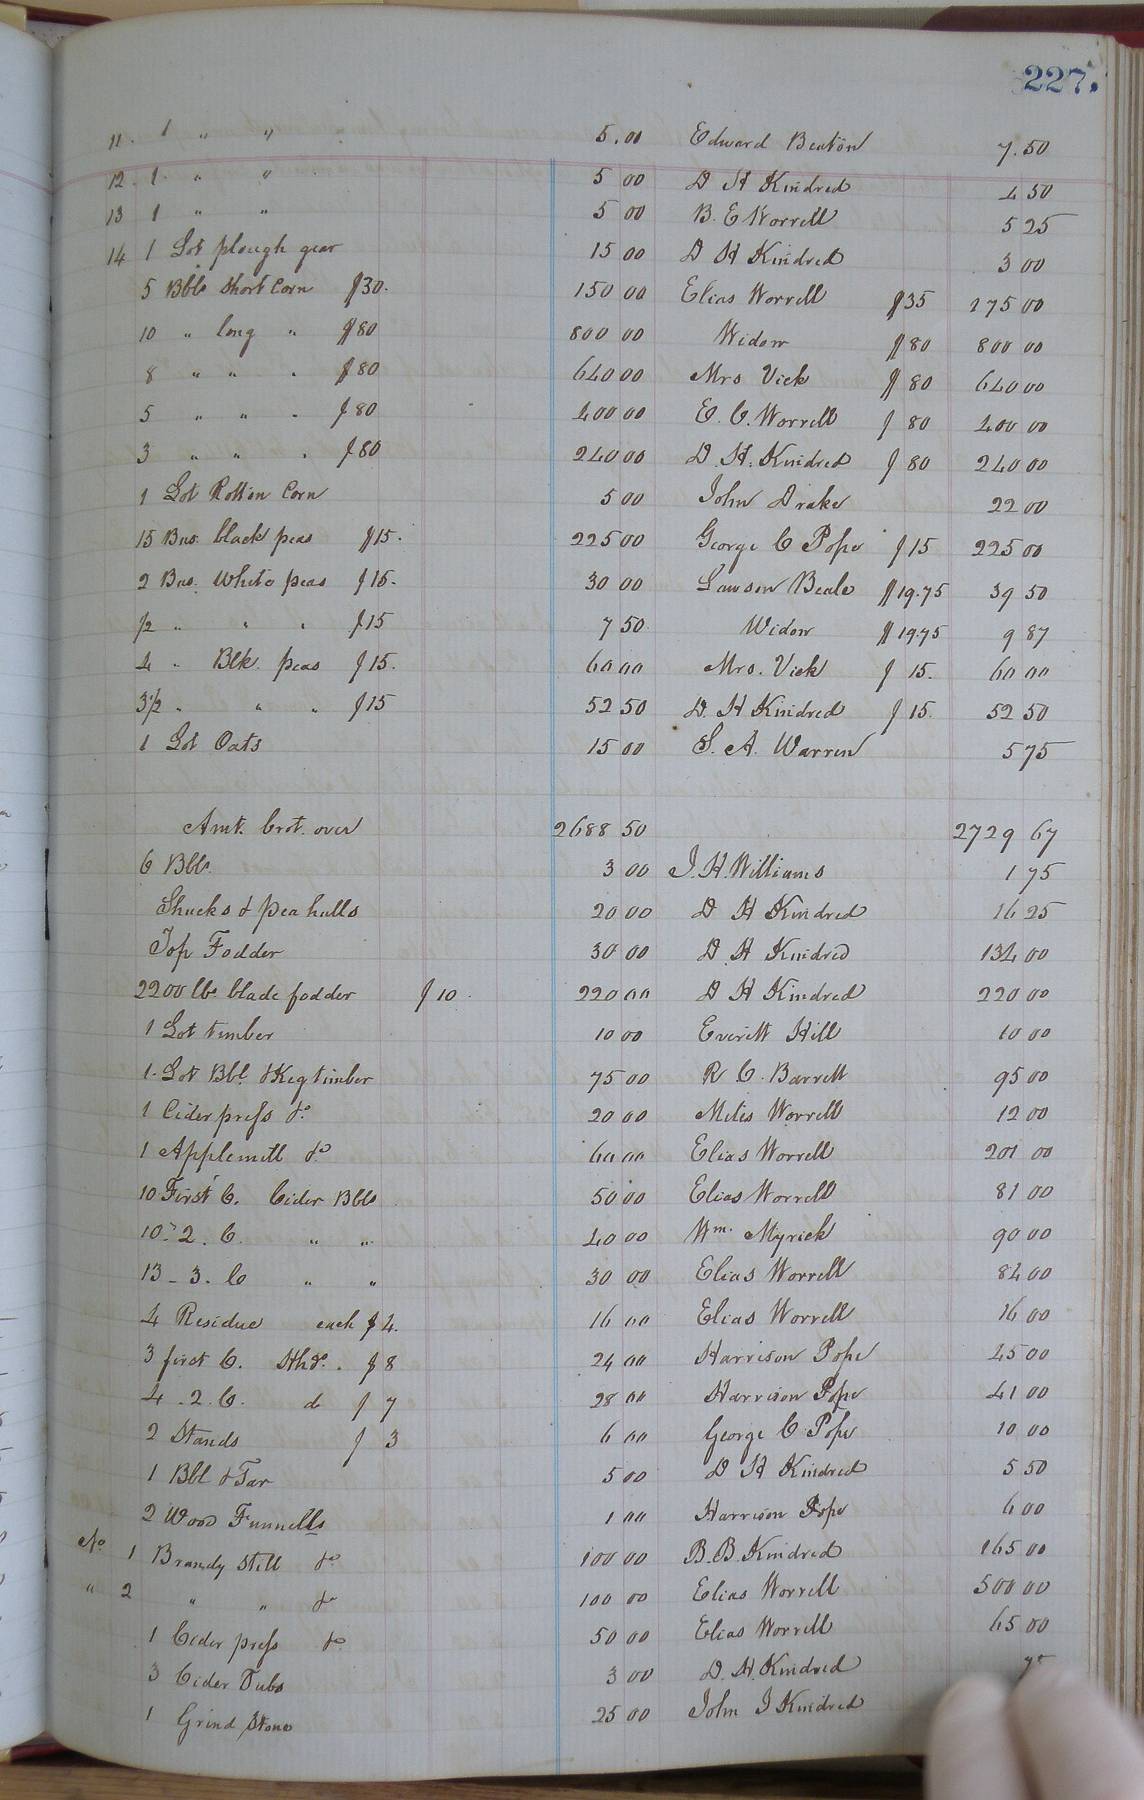 227.
11. 1 " " 5.00 Edward Beaton 7.50
12. 1. " " 5 00 D H Kindred 4 50
13 1 " " 5 00 B. E Worrell 5 25
14 1 Lot plough gear 15 00 D H Kindred 3 00
5 Bbls Short Corn $30. 150 00 Elias Worrell $35 175 00
10 " long " $80 800 00 Widow $80 800 00
8 " " " $80 640 00 Mrs Vick $80 640 00
5 " " " $80 400 00 E. C. Worrell $80 400 00
3 " " " $80 240 00 D. H. Kindred $80 240 00
1 Lot Rotten Corn 5 00 John Drake 22 00
15 Bus. black peas $15. 225 00 George C Pope $15 225 00
2 Bus. White peas $15. 30 00 Lawson Beale $19.75 39 50
1/2 " " " $15 7 50 Widow $19.75 9 87
4 " Blk. peas $15. 60 00 Mrs. Vick $15. 60 00
3 1/2 " " " $15 52 50 D. H Kindred $15. 52 50
1 Lot Oats 15 00 S. A. Warren 5 75
Amt. brot. over 2688 50 2729 67
6 Bbls. 3 00 J. H. Williams 1 75
Shucks & pea hulls 20 00 D H Kindred 16 25
Top Fodder 30 00 D. H Kindred 134 00
2200 lbs blade fodder $10. 220 00 D H Kindred 220 00
1 Lot timber 10 00 Everitt Hill 10 00
1. Lot Bbl. & Keg timber 75 00 R C. Barrett 95 00
1 Cider press &c 20 00 Miles Worrell 12 00
1 Applemill &c 60 00 Elias Worrell 201 00
10 First C. Cider Bbls 50 00 Elias Worrell 81 00
10 - 2. C. " " 40 00 Wm. Myrick 90 00
13 - 3. C " " 30 00 Elias Worrell 84 00
4 Residue each $4. 16 00 Elias Worrell 16 00
3 first C. Hhds. $8 24 00 Harrison Pope 45 00
4 - 2. C. do $7 28 00 Harrison Pope 41 00
2 Stands $3 6 00 George C Pope 10 00
1 Bbl & Tar 5 00 D H Kindred 5 50
2 Wood Funnells 1 00 Harrison Pope 6 00
No. 1 Brandy Still &c 100 00 B. B. Kindred 165 00
" 2 " " &c 100 00 Elias Worrell 500 00
1 Cider press &c 50 00 Elias Worrell 65 00
3 Cider Tubs 3 00 D. H. Kindred
1 Grind Stone 25 00 John J Kindred